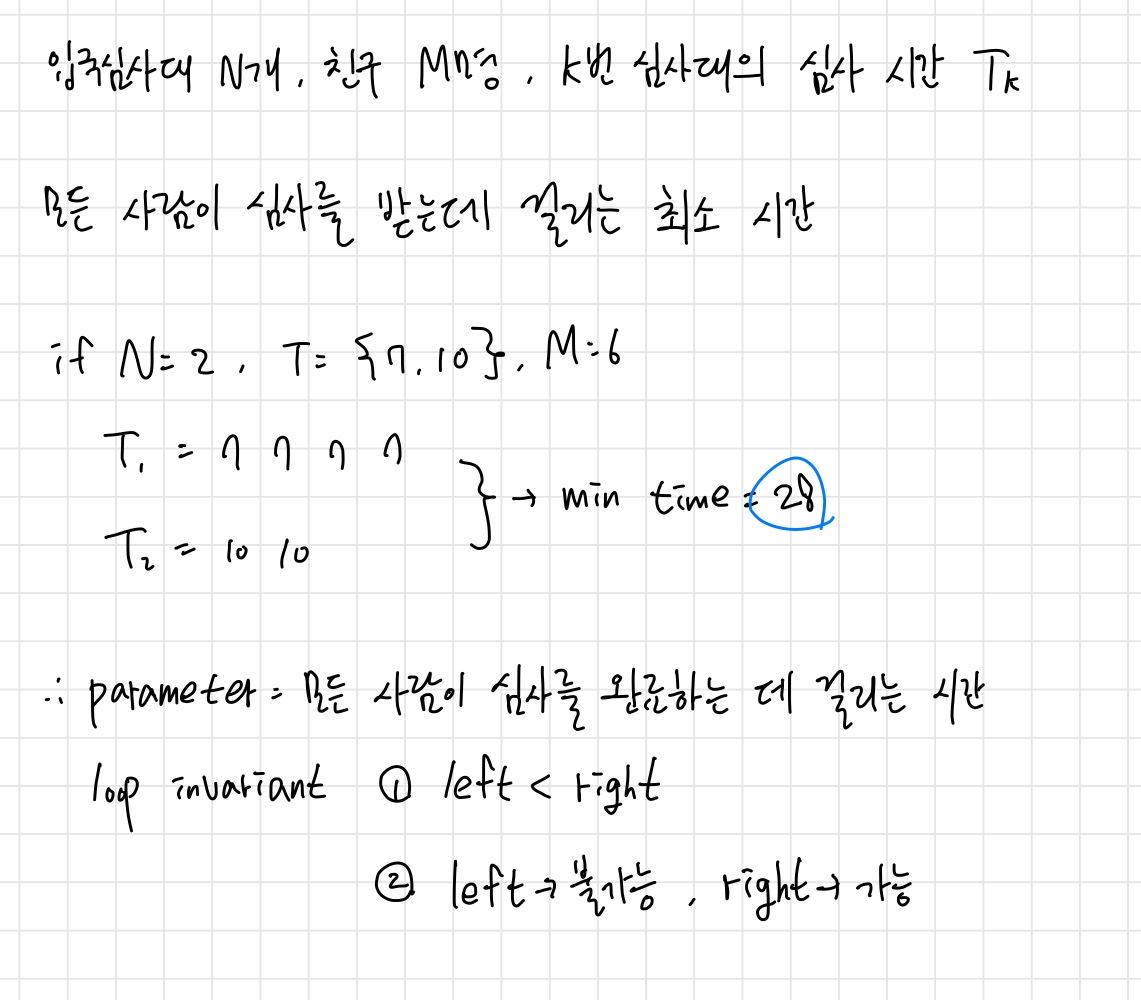 입국심사대 N개, 친구 M명, k번 심사대의 심사 시간 Tk
모든 사람이 심사를 받는데 걸리는 최소 시간
if N=2, T={7,10}, M=6
T1 = 7 7 7 7
} → min time = 28
T2 = 10 10
∴ parameter = 모든 사람이 심사를 완료하는 데 걸리는 시간
loop invariant ① left < right
② left → 불가능, right → 가능